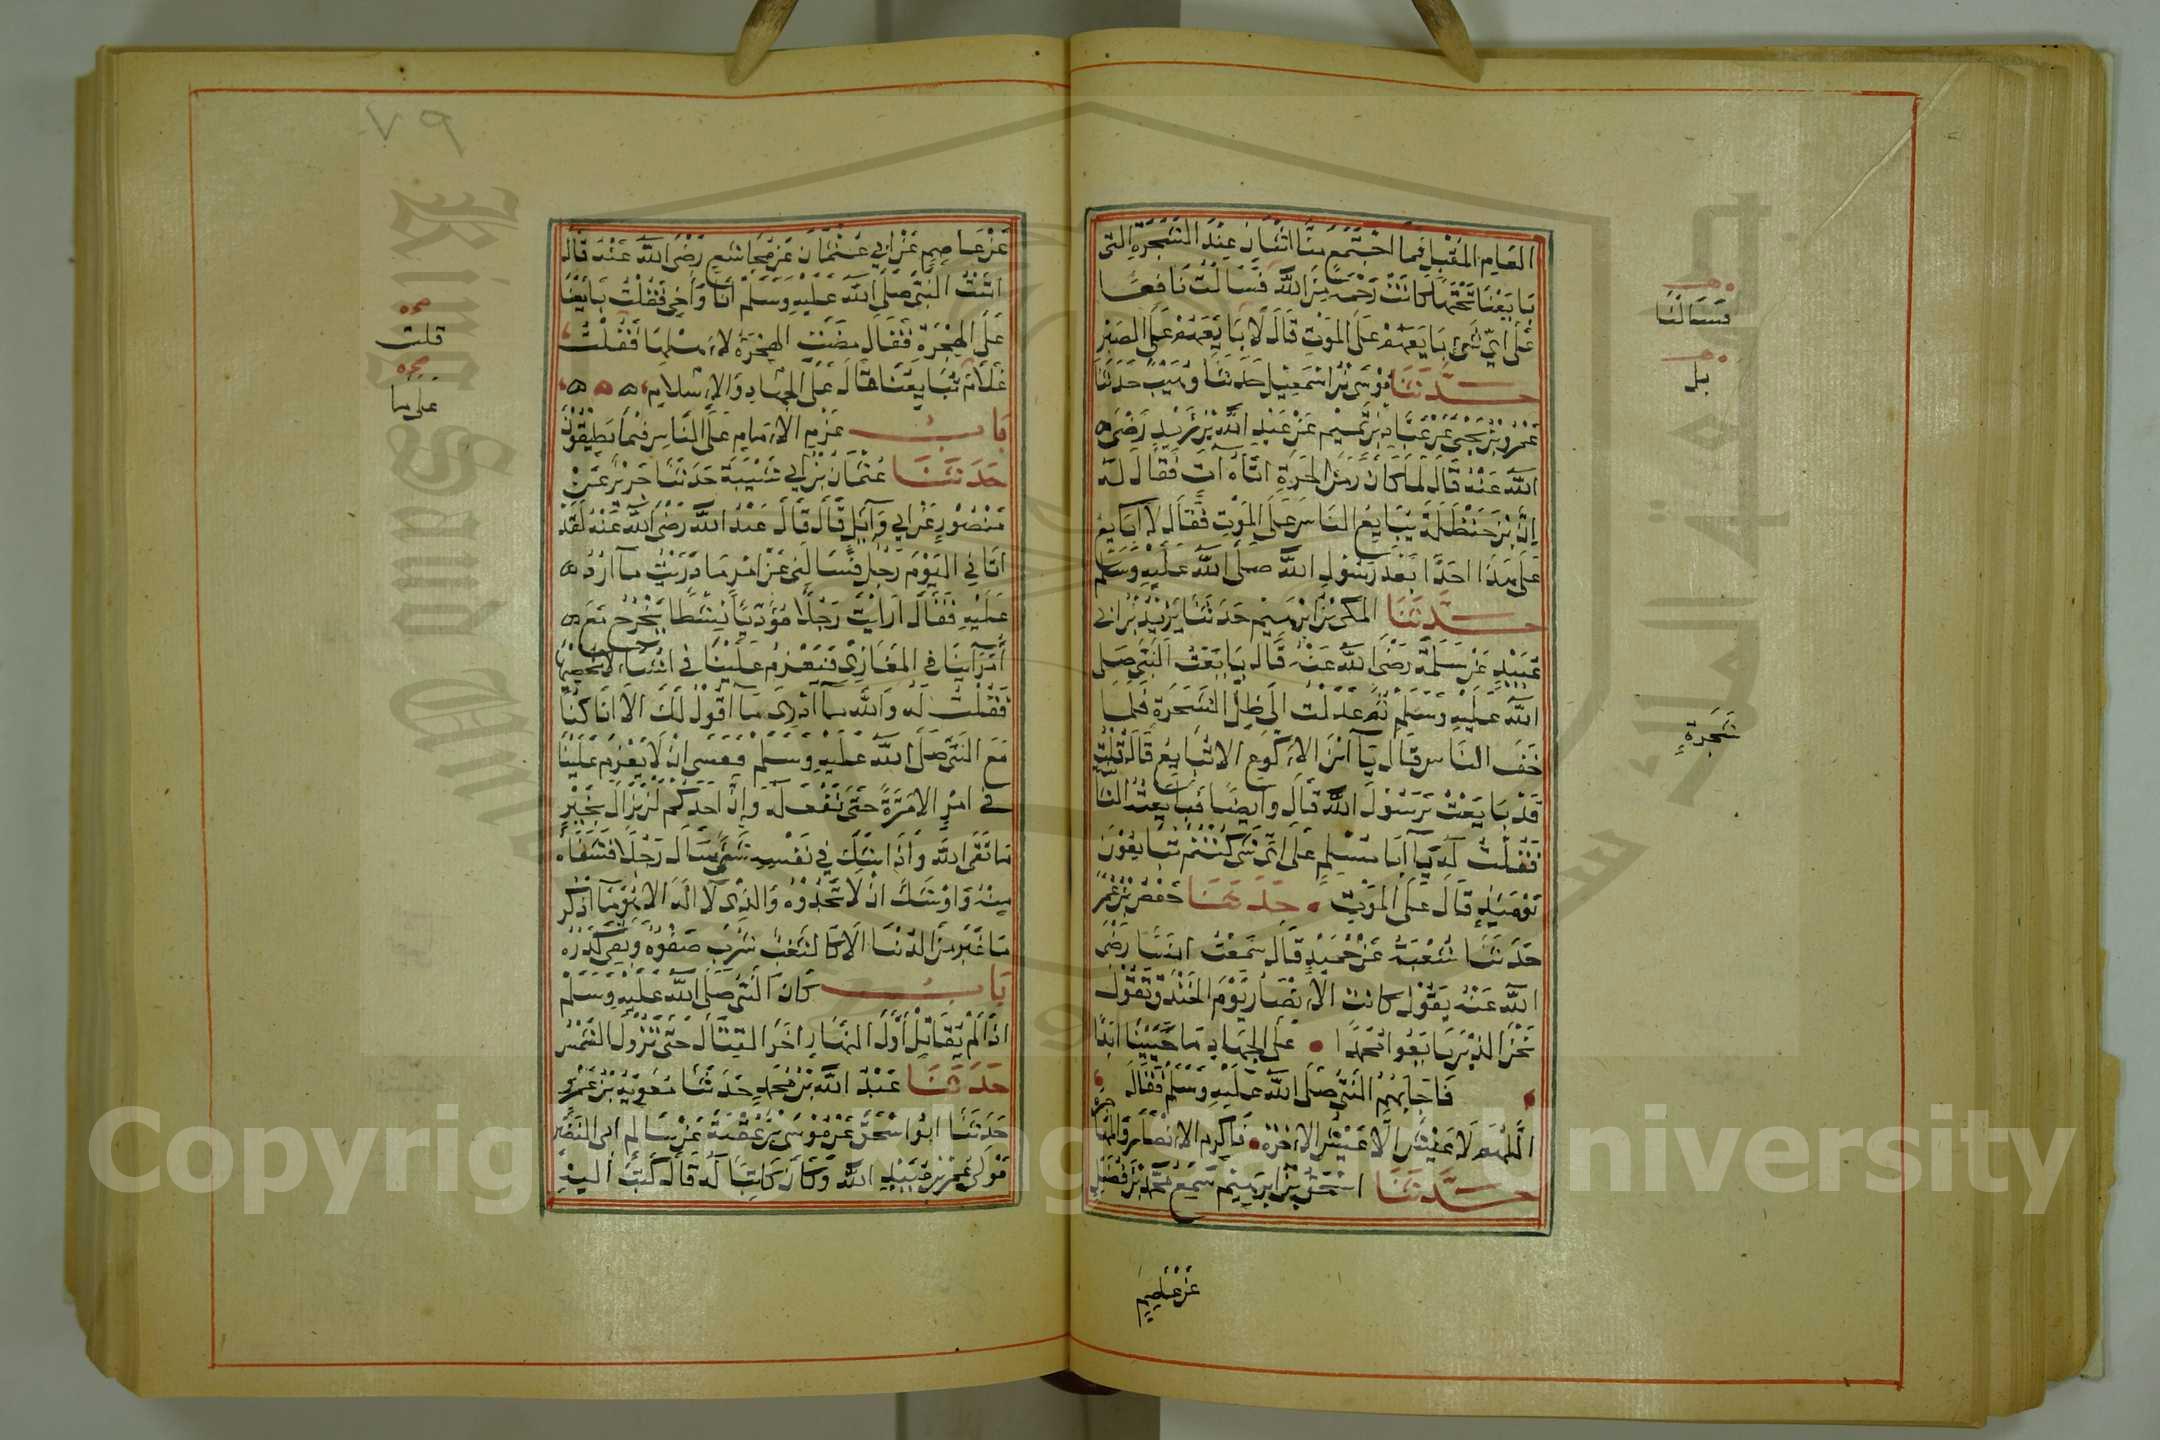 العَامِ المُقْبِلِ فَمَا اجْتَمَعَ مِنَّا اثْنَانِ عِنْدَ الشَّجَرَةِ الَّتِي
بَايَعْنَا تَحْتَهَا كَانَتْ رَحْمَةً مِنَ اللَّهِ فَسَأَلْتُ نَافِعًا
عَلَى أَيِّ شَيْءٍ بَايَعَهُمْ عَلَى المَوْتِ قَالَ لَا بَايَعَهُمْ عَلَى الصَّبْرِ
حَدَّثَنَا مُوسَى بْنُ اِسْمَعِيْل حَدَثَنَا وُهَيْبٌ حَدَثَنَا
عَمْرُو بْنُ يَحْيَى عَنْ عَبَّادِ بْنِ تَمِيْمٍ عَنْ عَبْدِ اللَّهِ بْنِ زَيْدٍ رَضِيَ
اللَّه عَنْهُ قَالَ لَمَا كَانَ زَمَنُ الحَرَةِ اَتَاهُ آتٍ فَقَالَ لَهُ
اِنَّ بْنَ حَنْظَلَةَ يُبَايِعُ النَاسَ عَلَى المَوْتِ فَقَالَ لَا اُبَايِعُ
عَلَى هَذَا اَحَدًا بَعْدَ رَسُولِ اللَّهِ صَلَى اللَّه عَلَيْهِ وَسَلَمْ
حَدَّثَنَا المَكِي بْنُ اِبْرَهِيْم حَدَثَنَا يَزِيْدُ بْنُ اَبِي
عُبَيْدٍ عَنْ سَلَمَةَ رَضِيَ اللَّه عَنْهُ قَالَ بَايَعْتُ النَبِيَّ صَلَى
اللَّه عَلَيْهِ وَسَلَمْ ثُمَّ عَدَلْتُ اِلَى ظِلِّ الشَّجَرَةِ فَلَمَا
خَفَّ النَاسُ قَالَ يَا اَبْنَ الاَكْوَعِ الَا تُبَايِعُ قَالَ قُلْتُ
قَدْ بَايَعْتُ يَرَسُوْلَ اللَّهِ قَالَ وَاَيْضًا فَبَايَعْتُهُ الثَانِيَةَ
فَقُلْتُ لَهُ يَا اَبَا مُسْلِمٍ عَلَى اَيِّ شَيْءٍ كُنْتُمْ تُبَايِعُوْنَ
يَوْمَئِذٍ قَالَ عَلَى المَوْتِ • حَدَثَنَا حَفْصُ بْنُ عُمَرَ
حَدَثَنَا شُعْبَةُ عَنْ حُمَيْدٍ قَالَ سَمِعْتُ اَنَسًا رَضْيَ
اللَّه عَنْهُ يَقُوْلُ كَانَتْ الاَنْصَارُ يَوْمَ الخَنْدَقِ تَقُوْلُ
نَحْنُ الذِيْنَ بَايَعُوا مُحَمَدًا • عَلَى الجِهَادِ مَا حَيِيْنَا اَبَدًا
• فَاَجَابَهُمْ النَبِيُّ صَلَى اللَّه عَلَيْهِ وَسَلَمْ فَقَالَ
اللَّهُمَ لَا عَيْشَ اِلَّا عَيْشُ الاٰخِرَة • فَاَكْرِمِ الاَنْصَارَ وَالمُهَاجِرَة
حَدَّثَنَا اِسْحَقُ بْنُ اِبْرَهِيْمَ سَمِعَ مُحَمَّدَ بْنَ فُضَيْلٍ
عَنْ عَاصِمٍ
فَسَأَلْنَا
بَلْ
شَجَرَةٍ
٩٧
عَنْ عَاصِمٍ عَنْ اَبِي عُثْمَان عَنْ مُجَاشِعٍ رَضْيَ اللَّه عَنْهُ قَالَ
اَتَيْتُ النَبِيَّ صَلَى اللَّه عَلَيْهِ وَسَلَمْ اَنَا وَاَخِي فَقُلْتُ بَايِعْنَا
عَلَى الهِجْرَةِ فَقَالَ مَضَتِ الهِجْرَةُ لِاَهْلِهَا فَقُلْتُ
عَلَامَ تُبَايِعُنَا قَالَ عَلَى الجِهَادِ وَالاِسْلَامِ
بَابُ عَزْمِ الاِمَامِ عَلَى النَاسِ فِيْمَا يُطِيْقُوْنَ
حَدَثَنَا عُثْمَانُ بْنُ اَبِي شَيْبَةَ حَدَثَنَا جَرِيْرٌ عَنْ
مَنْصُوْرٍ عَنْ اَبِي وَآئِلٍ قَالَ قَالَ عَبْدُ اللَّهِ رَضْيَ اللَّه عَنْهُ لَقَدْ
اَتَانِي اليَوْمَ رَجُلٌ فَسَاَلَنِي عَنْ اَمْرٍ مَا دَرَيْتُ مَا اَرُدُّ
عَلَيْهِ فَقَالَ اَرَاَيْتَ رَجُلًا مُؤْدِيًا نَشِيْطًا يَخْرُجُ مَعَ
اُمَرَآئِنَا فِي المَغَازِي فَيَعْزِمُ عَلَيْنَا فِي اَشْيَاءَ لَا نُحْصِيْهَا
فَقُلْتُ لَهُ وَاللَّهِ مَا اَدْرِي مَا اَقُوْلُ لَكَ اِلَّا اَنَا كُنَّا
مَعَ النَبِيِّ صَلَى اللَّه عَلَيْهِ وَسَلَمْ فَعَسَى اَنْ لَا يَعْزِمَ عَلَيْنَا
فِي اَمْرٍ اِلَا مَرَّةً حَتَى نَفْعَلَهُ وَاِنَّ اَحَدَكُمْ لَنْ يَزَالَ بِخَيْرٍ
مَا تَقَى اللَّهَ وَاِذَا شَكَّ فِي نَفْسِهِ شَيْءٌ سَاَلَ رَجُلًا فَشَفَاهُ
مِنْهُ وَاَوْشَكَ اَنْ لَا تَجِدُوْهُ وَالذِي لَا اِلَهَ اِلَا هُوَ مَا اَذْكُرُ
مَا غَبَرَ مِنَ الدُنْيَا اِلَا كَالثَغْبِ شُرِبَ صَفْوُهُ وَبَقِيَ كَدَرُهُ
بَابُ كَانَ النَبِيُّ صَلَى اللَّه عَلَيْهِ وَسَلَمْ
اِذَا لَمْ يُقَاتِلْ اَوَّلَ النَهَارِ اَخَّرَ القِتَالَ حَتَى تَزُوْلَ الشَمْسُ
حَدَثَنَا عَبْدُ اللَّهِ بْنُ مُحَمَدٍ حَدَثَنَا مُعَوِيَةُ بْنُ عَمْرٍو
حَدَثَنَا اَبُوا اِسْحَقَ عَنْ مُوْسَى بْنِ عُقْبَةَ عَنْ سَالِمٍ اَبِي النَضْرِ
مَوْلَى عُمَرَ بْنِ عُبَيْدِ اللَّهِ وَكَانَ كَاتِبًا لَهُ قَالَ كَتَبَ اِلَيْهِ
قلت
عَلَى مَا
King Saud University
جامعة الملك سعود
Copyright © King Saud University